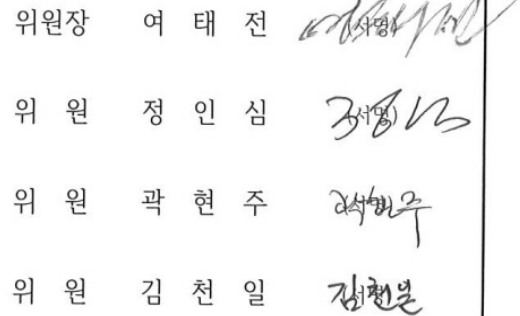 위원장 여 태 전 (서명)
위 원 정 인 심 (서명)
위 원 곽 현 주 (서명)
위 원 김 천 일 (서명) 김천일